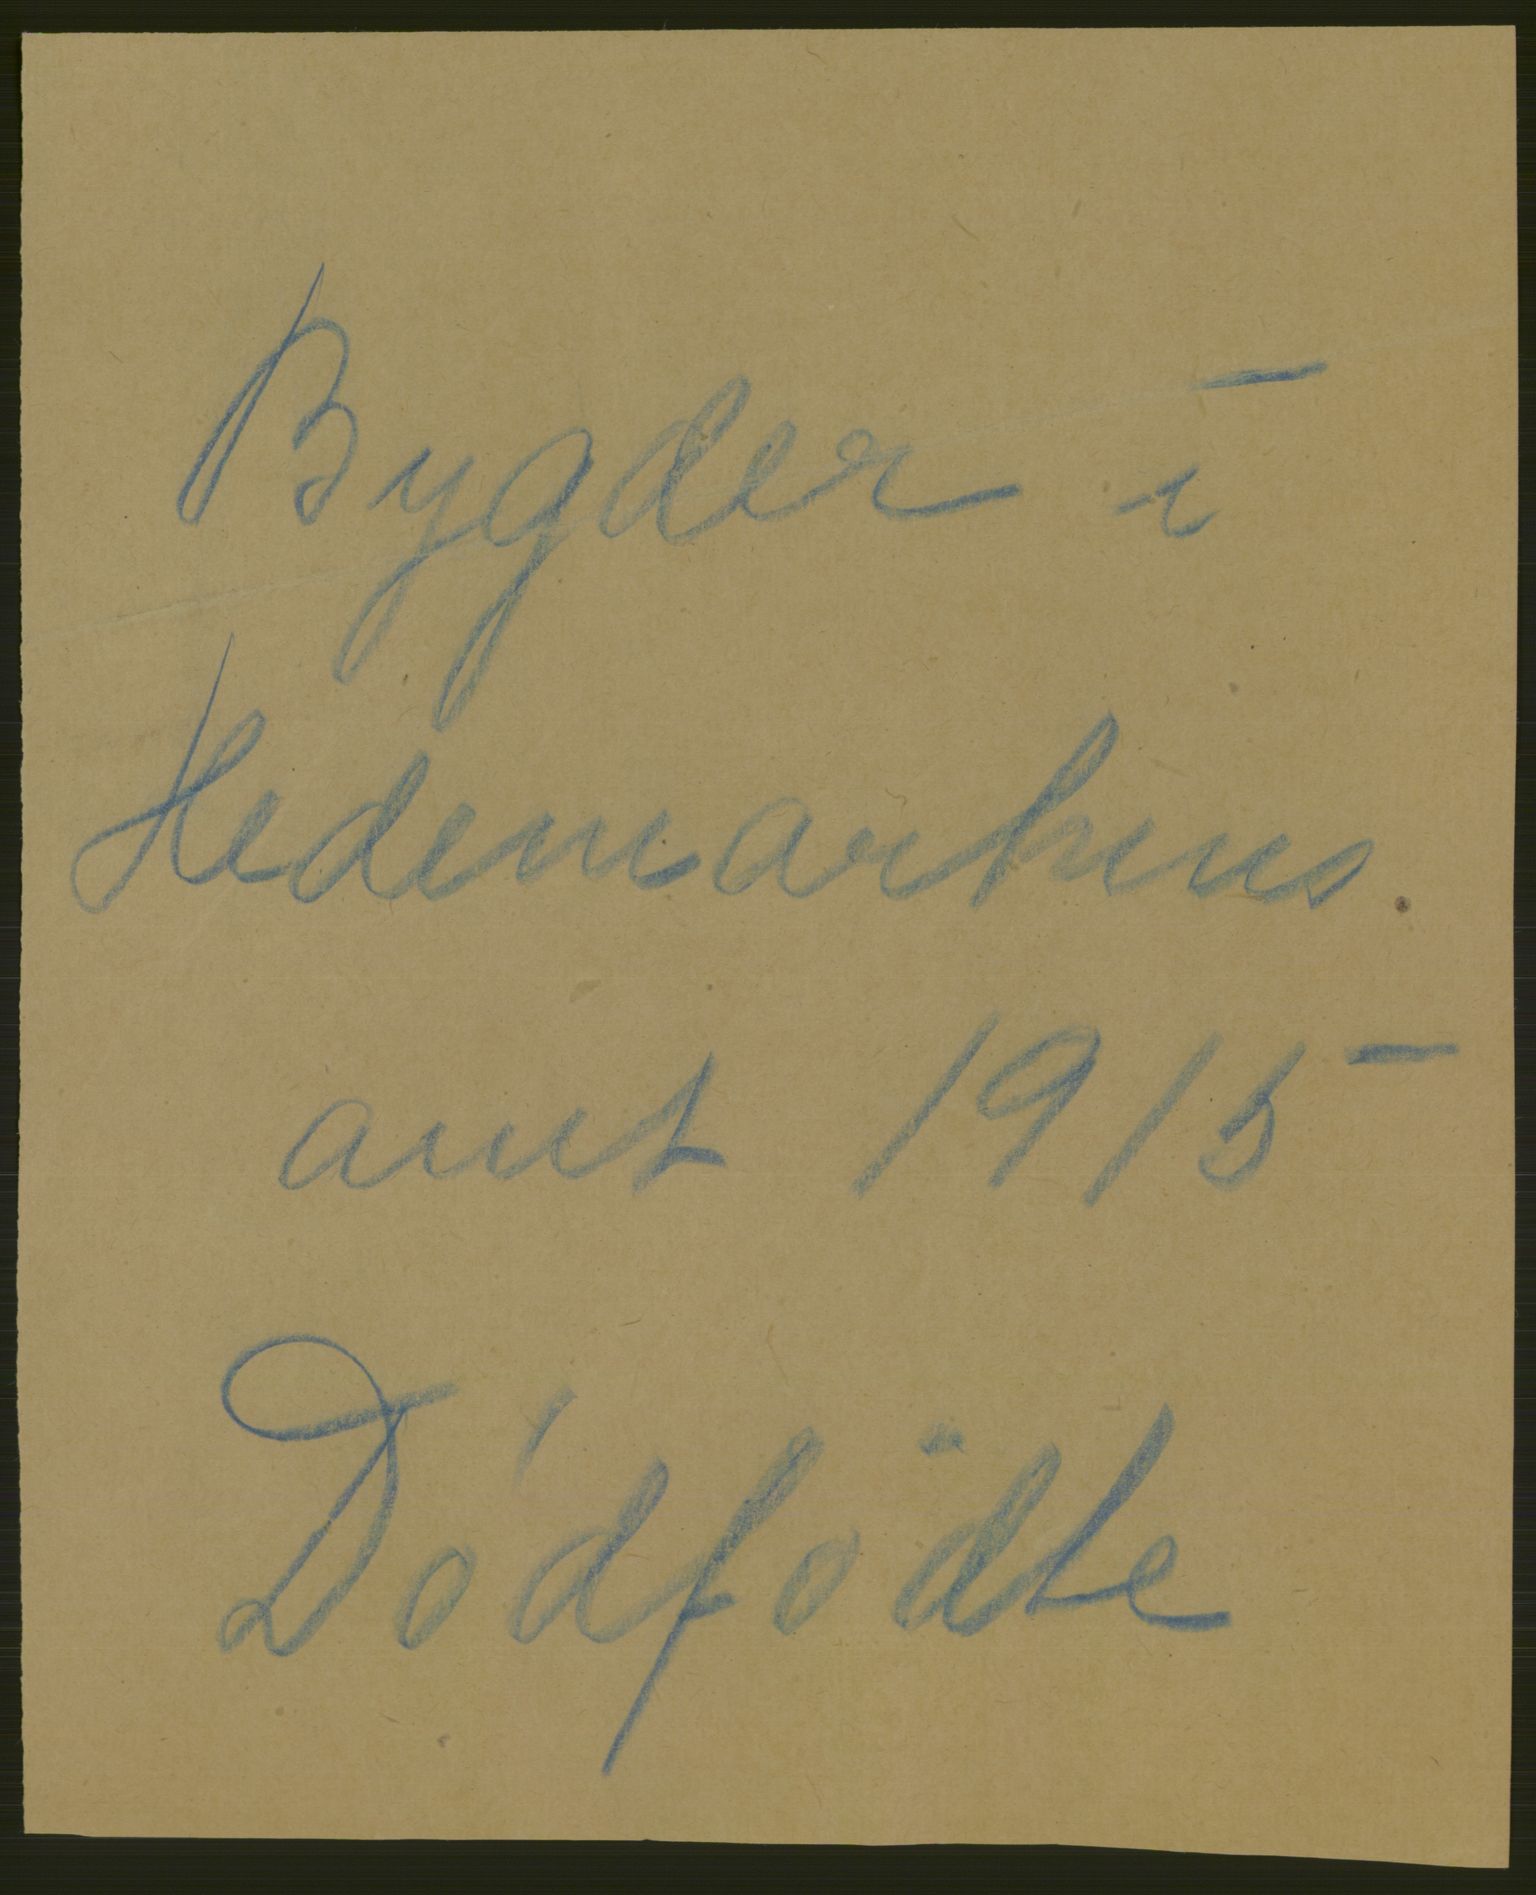 Bygder i
Hedemarkens
amt 1915
Dødfødte